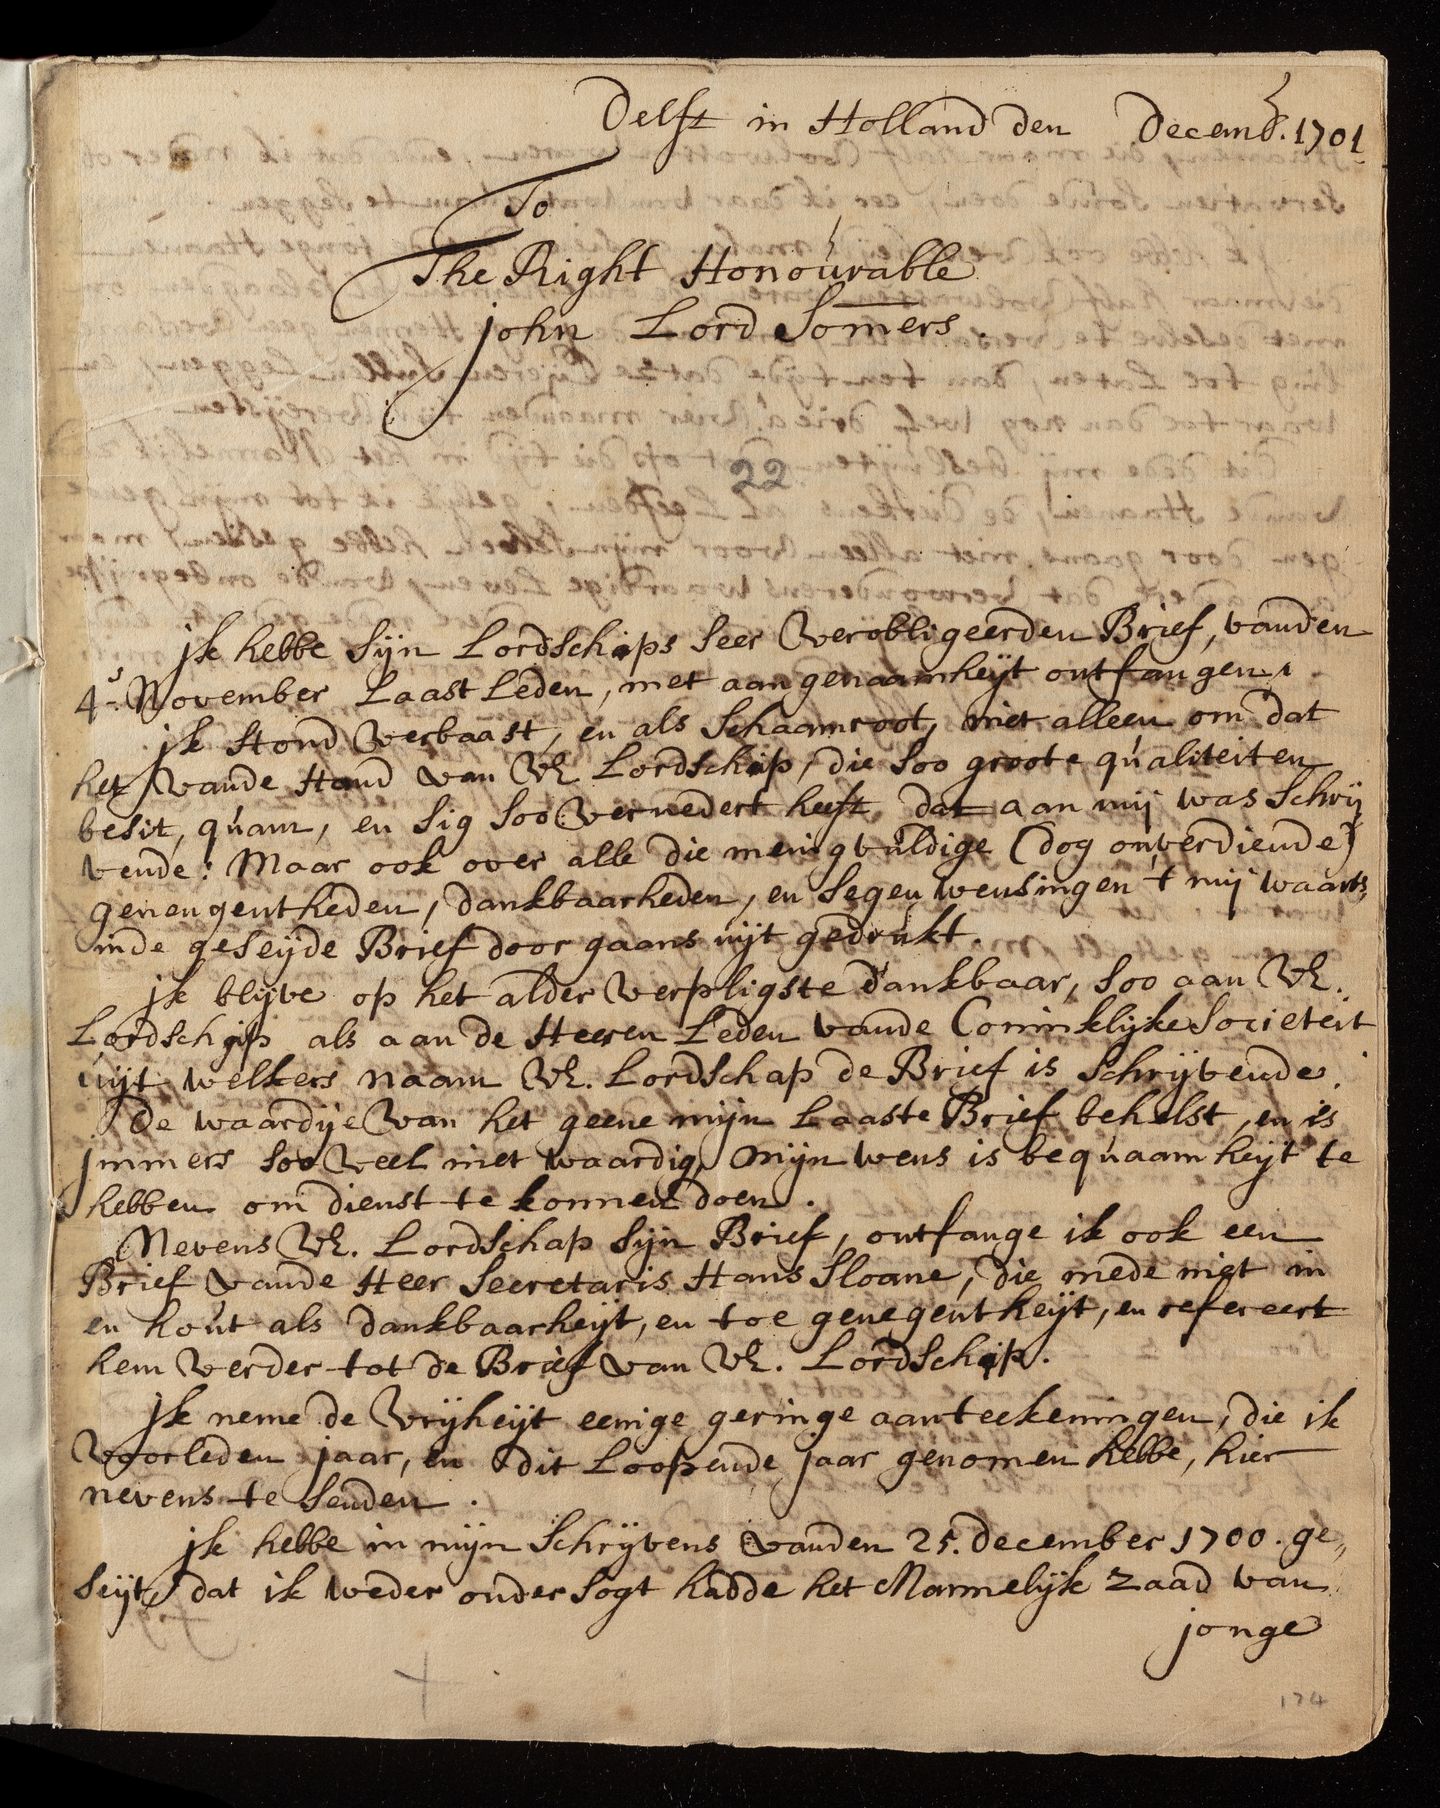 Delft in Holland den Decemb.r 1701
To
The Right Honoúrable
John Lord Somers.
22
Jk hebbe Sijn Lordschips Seer Verobligeerden Brief, vanden
4.s November Laast Leden, met aangenaamheijt ontfangen,
jk Stond Verbaast, en als Schaamroot, niet alleen om dat
het vande Hand van VE Lordschip, die Soo groote qúaliteiten
besit, qúam, en Sig Soo Vernedert heeft, dat aan mij was Schrij
vende: Maar ook over alle die menigvúldige (dog onverdiende)
genengentheden, dankbaarheden, en Segen wensingen t mij waarts
inde geseijde Brief door gaans uijt gedrúkt.
jk blijve op het alder Verpligste dankbaar, Soo aan VE.
Lordschip als aan de Heeren Leden vande Coninklijke Societeit
úijt welkers naam VE. Lordschap de Brief is Schrijvende.
De waardije Van het geene mijn Laaste Brief behelst, en is
jmmers Soo Veel niet waardig, Mijn wens is beqúaamheijt te
hebben om dienst te konnen doen.
Nevens VE. Lordschap Sijn Brief, ontfange ik ook een
Brief vande Heer Secretaris Hans Sloane, die mede niet in
en hoút als dankbaarheijt, en toe genegentheijt, en refereert
hem Verder tot de Brief van VE. Lordschip.
Jk neme de Vrijheijt eenige geringe aanteekeningen, die ik
Voorleden jaar, en dit Loopende jaar genomen hebbe, hier
nevens te Senden.
jk hebbe in mijn Schrijvens vanden 25. december 1700. ge„
Seijt, dat ik weder ondersogt hadde het Mannelijk zaad van
jonge
174